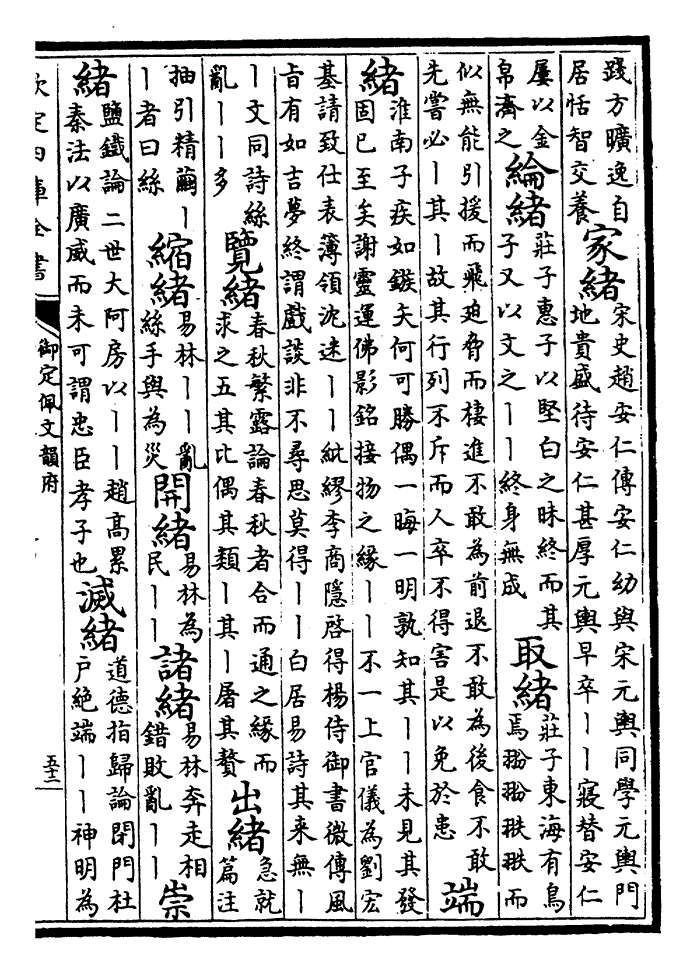 踐方曠逸自
居恬智交養
家緒
宋史趙安仁傳安仁幼與宋元輿同學元輿門
地貴盛待安仁甚厚元輿早卒丨丨寢替安仁
屢以金
帛濟之
綸緒
莊子惠子以堅白之昧終而其
子又以文之丨丨終身無成
取緒
莊子東海有鳥
焉翂翂翐翐而
似無能引援而飛廹脅而棲進不敢為前退不敢為後食不敢
先嘗必丨其丨故其行列不斥而人卒不得害是以免於患
端
緒
淮南子疾如鏃矢何可勝偶一晦一明孰知其丨丨未見其發
固已至矣謝靈運佛影銘接物之緣丨丨不一上官儀為劉宏
基請致仕表簿領沈迷丨丨紕繆李商隱啓得楊侍御書微傳風
旨有如吉夢終謂戲談非不尋思莫得丨丨白居易詩其来無丨
丨文同詩絲
亂丨丨多
覽緒
春秋繁露論春秋者合而通之緣而
求之五其比偶其類丨其丨屠其贅
出緒
急就
篇注
抽引精繭丨
丨者曰絲
縮緒
易林丨丨亂
絲手與為災
開緒
易林為
民丨丨
諸緒
易林奔走相
錯敗亂丨丨
崇
緒
鹽鐵論二世大阿房以丨丨趙高累
秦法以廣威而未可謂忠臣孝子也
滅緒
道德指歸論閉門杜
户絶端丨丨神明為
欽定四庫全書
御定佩文韻府